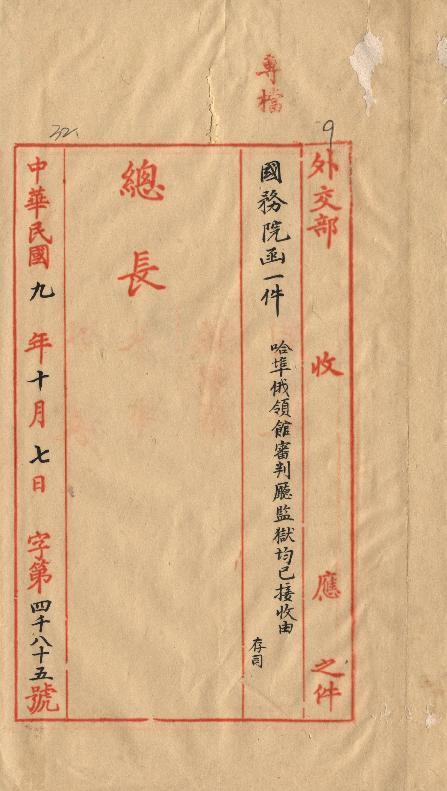 專檔
9
外交部收應之件
國務院函一件
哈埠俄領館審判廳監獄均已接收由
存司
總長
32
中華民國九年十月七日字第四千八十五號